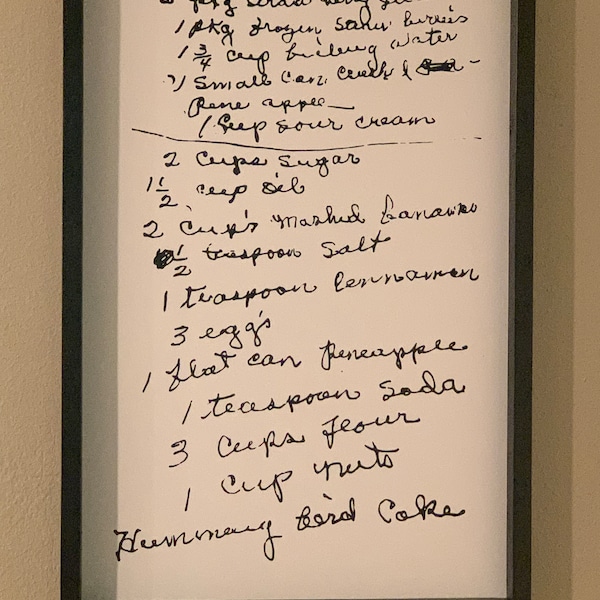 pkg
1 pkg frozen straw burries
1 3/4 cup boiling water
1 small can crush
Pene apple
1 Cup sour cream
2 Cups Sugar
1 1/2 cup oil
2 Cup's mashed bananas
1/2 teaspoon Salt
1 teaspoon Cennamon
3 egg's
1 flat can Peneapple
1 teaspoon Soda
3 Cups flour
1 Cup nuts
Hummeng berd Cake